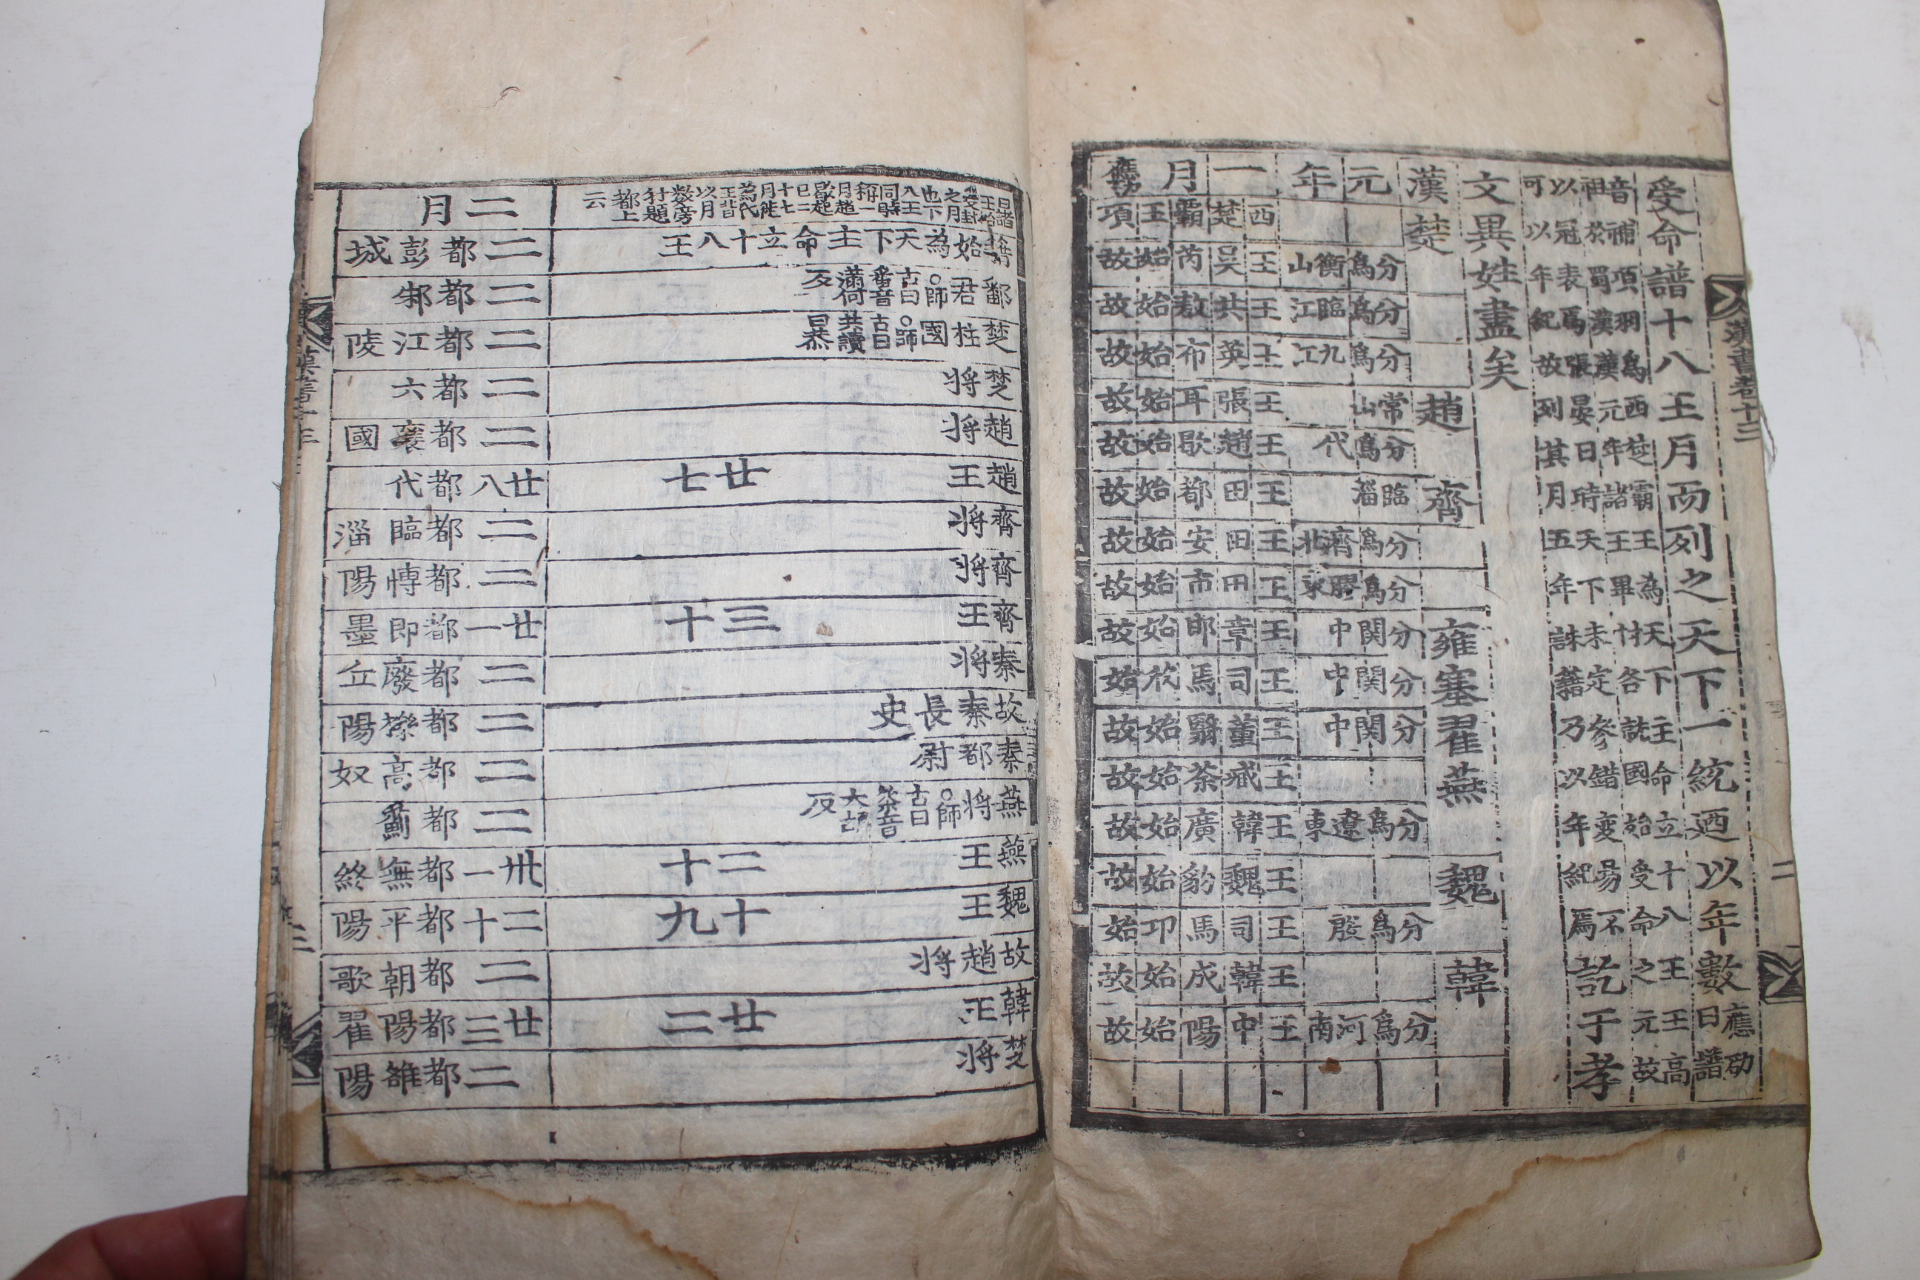 受命譜十八王月而列之天下一統迺以年數
應劭曰譜
音補項羽爲西楚霸王為天下主命立十八王王高
祖於蜀漢漢元年諸王畢封各就國始受命之元故
以冠表焉張晏曰時天下未定參錯變易不
可以年紀故列其月五年誅籍乃以年紀焉
訖于孝
文異姓盡矣
漢 楚 趙 齊 雍 塞 翟 燕 魏 韓
元年一月
西楚霸王項
分爲衡山 王吳芮始故
分爲臨江 王共敖始故
分爲九江 王英布始故
常山 王張耳始故
分爲代 王趙歇始故
臨淄 王田都始故
分爲濟北 王田安始故
分爲膠東 王田市始故
分関中 王章邯始故
分関中 王司馬欣始
分関中 王董翳始故
王臧荼始故
分爲遼東 王韓廣始故
王魏豹始故
分爲殷 王司馬卬始
王韓成始故
分爲河南 王申陽始故
籍始為天下主命立十八王
鄱君
師古曰鄱音蒲何反
楚柱國
師古曰共讀曰恭
楚將
趙將
趙王 廿七
齊將
齊將
齊王 三十
秦將
故秦長史
秦都尉
燕將
燕王 二十
魏王 十九
故趙將
韓王 廿二
楚將
二月
二 都彭城
二 都邾
二 都江陵
二 都六
二 都襄國
廿八 都代
二 都臨淄
二 都博陽
廿一 都即墨
二 都廢丘
二 都櫟陽
二 都高奴
二 都薊
卅一 都無終
二十 都平陽
二 都朝歌
廿三 都陽翟
二 都雒陽